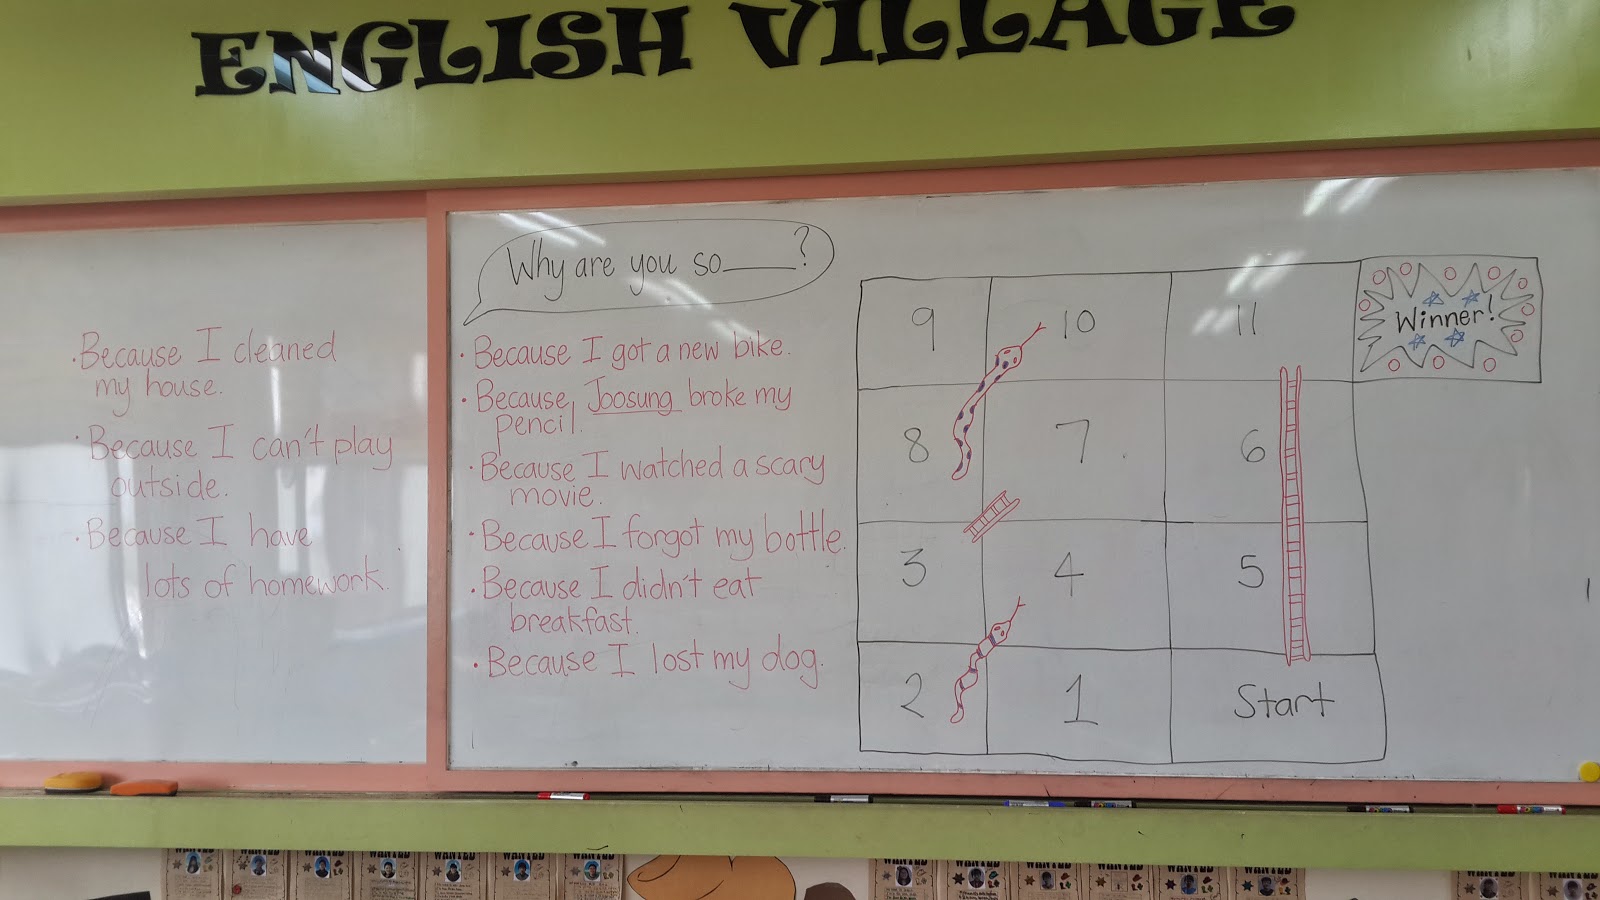 ENGLISH VILLAGE
· Because I cleaned
my house.
· Because I can't play
outside.
· Because I have
lots of homework.
Why are you so____?
· Because I got a new bike.
· Because Joosung broke my
pencil.
· Because I watched a scary
movie.
· Because I forgot my bottle.
· Because I didn't eat
breakfast.
· Because I lost my dog.
9 10 11 Winner!
8 7 6
3 4 5
2 1 Start
WANTED WANTED WANTED WANTED WANTED WANTED WANTED